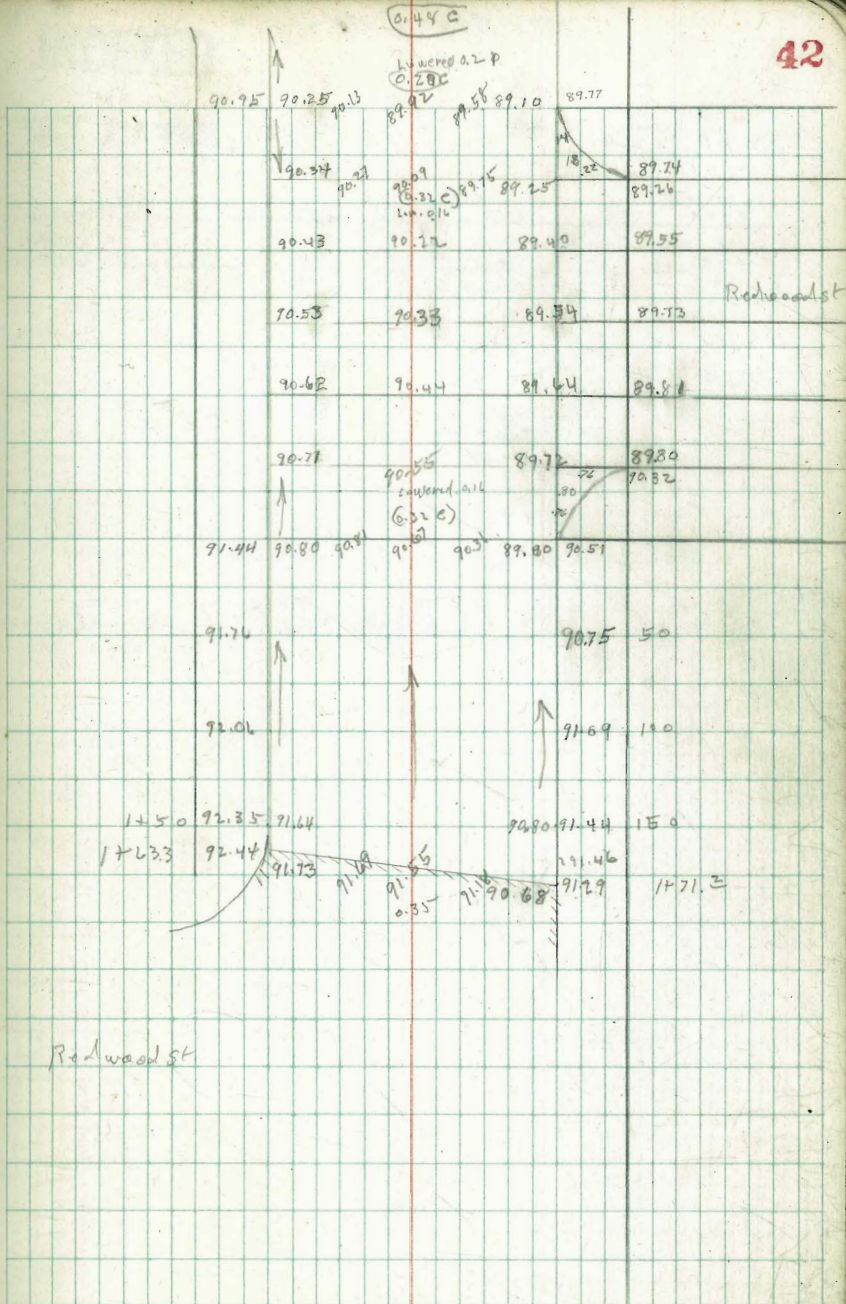 42
0.48 C
Lowered 0.2
0.28 C
90.95 90.25 90.13 89.92 89.58 89.10 89.77
14
90.34 90.27 90.09 89.75 89.25 18 .22 89.74
(0.32 C) 89.26
Low. 0.16
90.43 90.22 89.40 89.55
Redwood st
90.53 90.33 89.54 89.73
90.62 90.44 89.64 89.81
90.71 90.55 89.72 89.80
.76 90.32
Lowered 0.16 .80
(0.32 C) .76
91.44 90.80 90.81 90.67 90.31 89.80 90.51
91.76 90.75 50
92.06 91.09 100
1+50 92.35 91.64 90.80 91.44 150
1+633 92.44 91.46
91.73 91.69 91.55 91.18 90.68 91.29 1+71.3
0.35
Redwood st